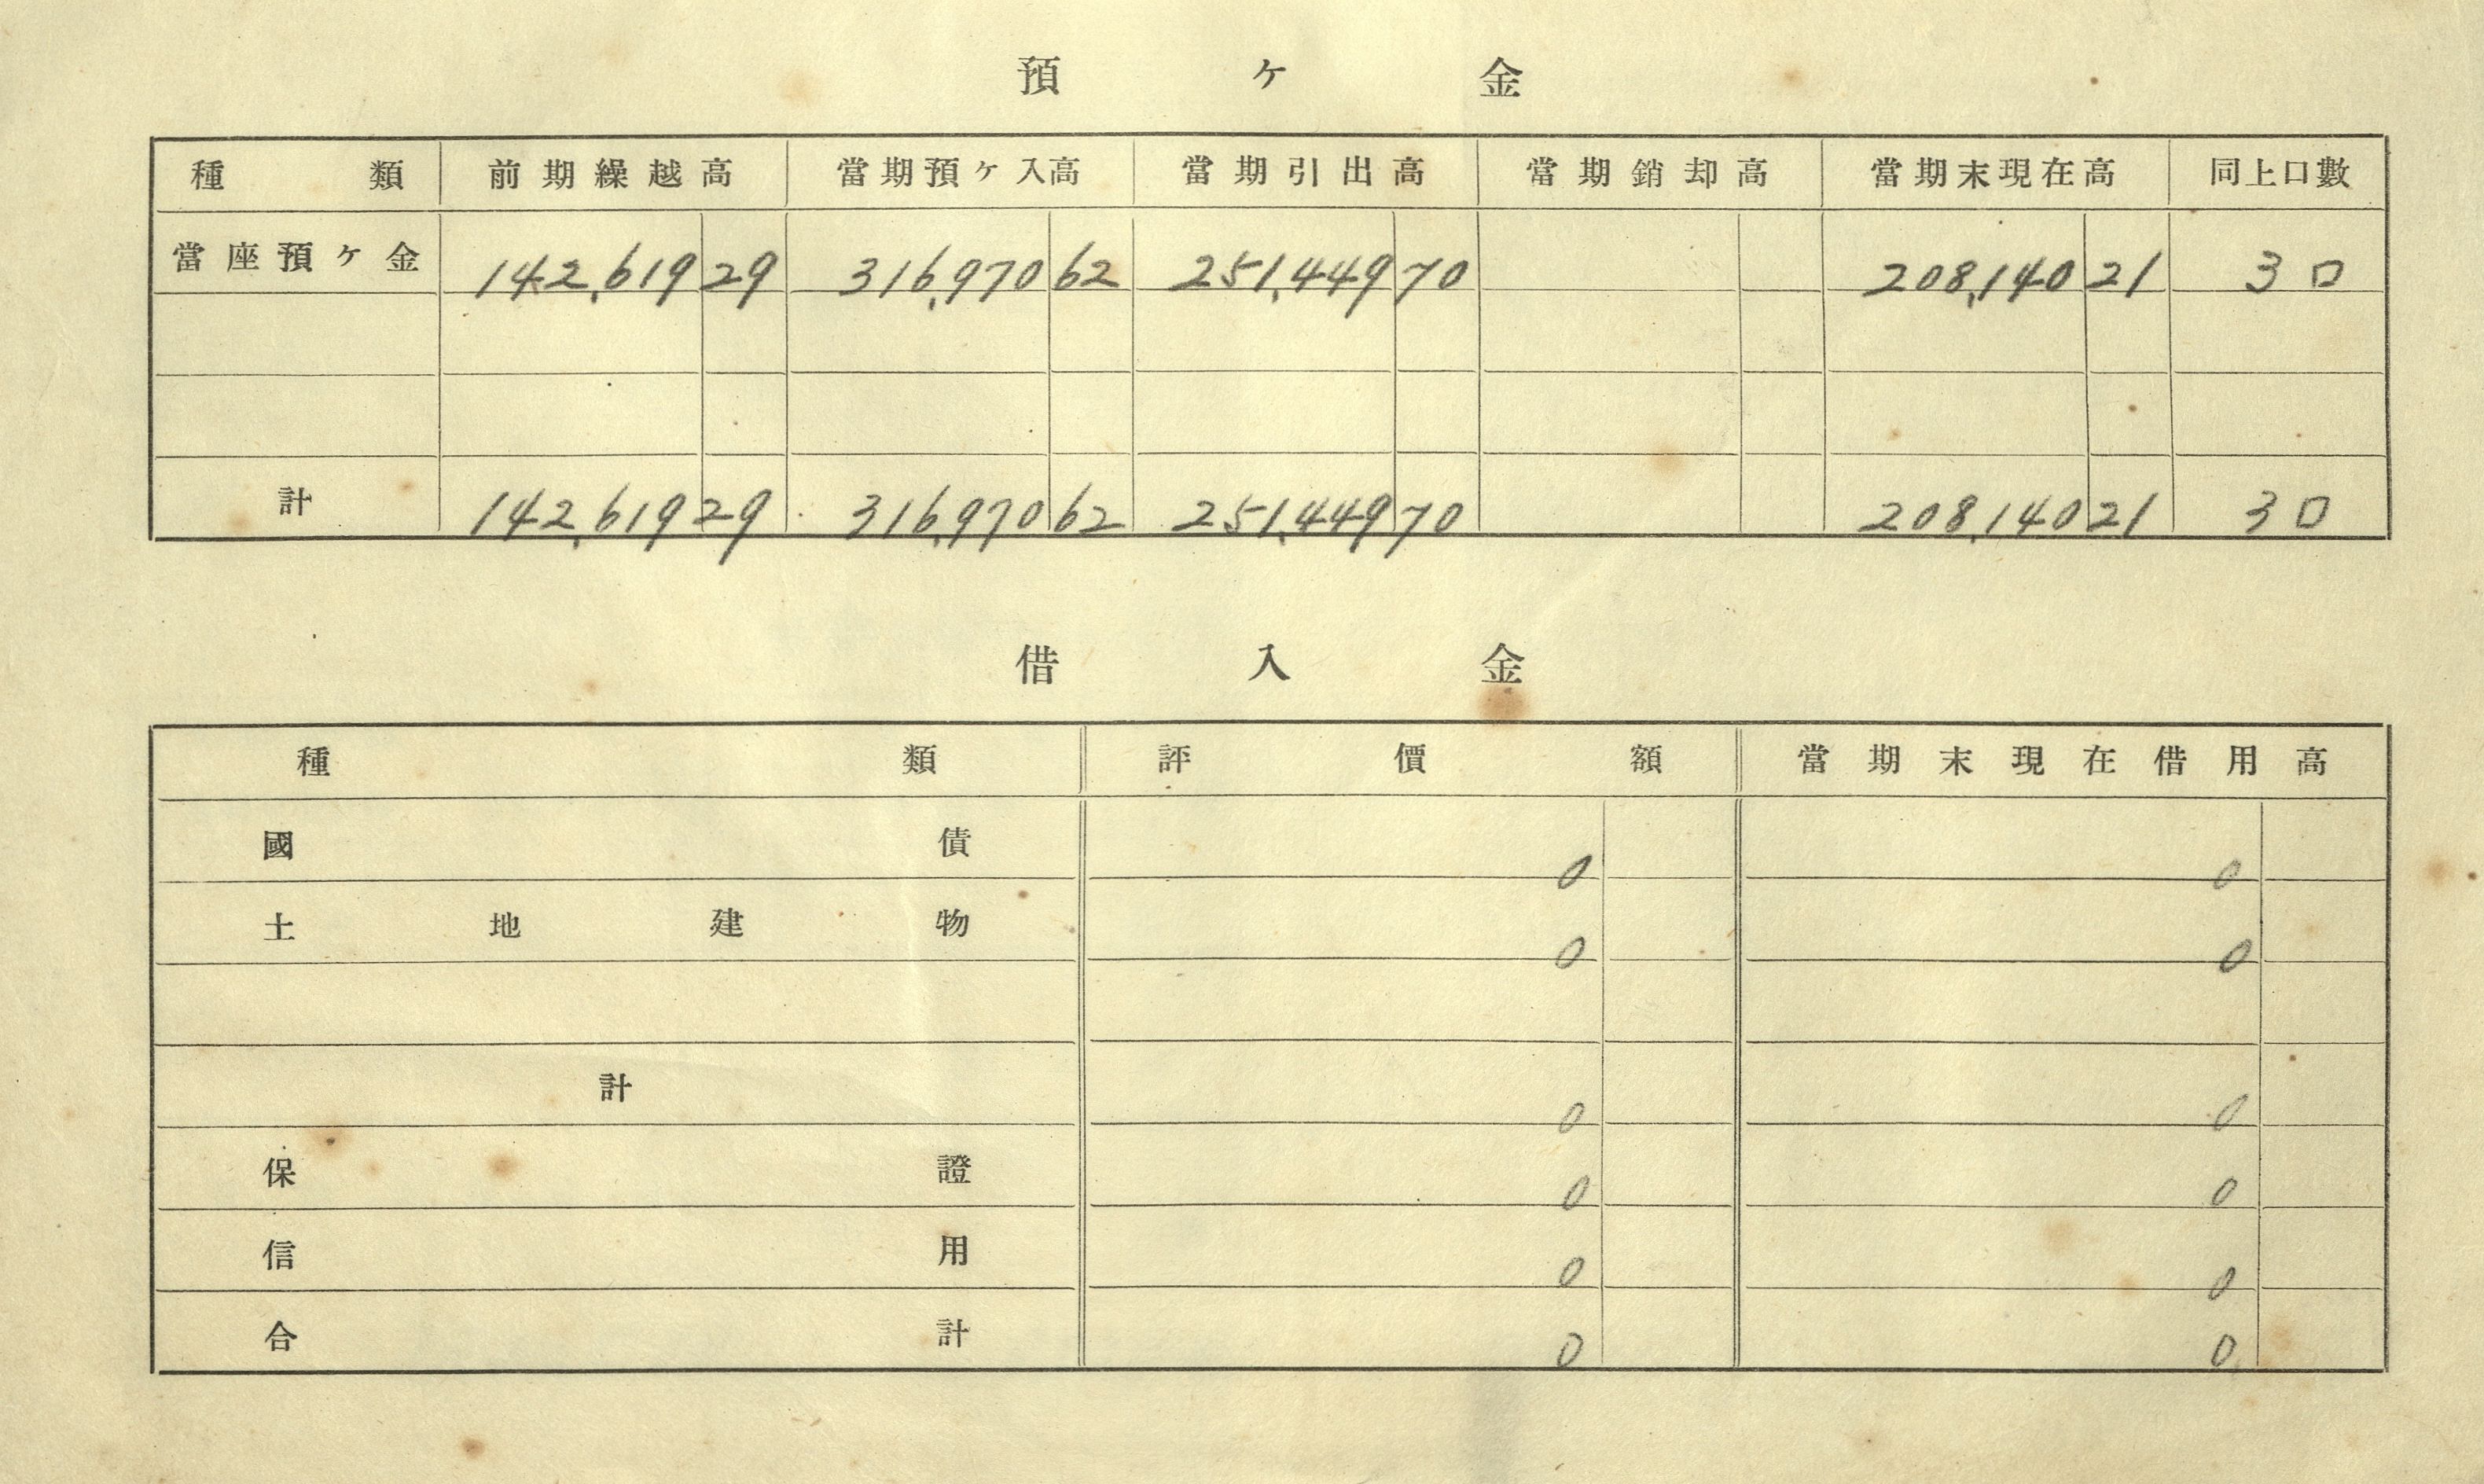 預ヶ金
種類 前期繰越高 當期預ヶ入高 當期引出高 當期銷却高 當期末現在高 同上口數
當座預ヶ金 142,619 29 316,970 62 251,449 70 208,140 21 3口
計 142,619 29 316,970 62 251,449 70 208,140 21 3口
借入金
種類 評價額 當期末現在借用高
國債 0 0
土地建物 0 0
計 0 0
保證 0 0
信用 0 0
合計 0 0